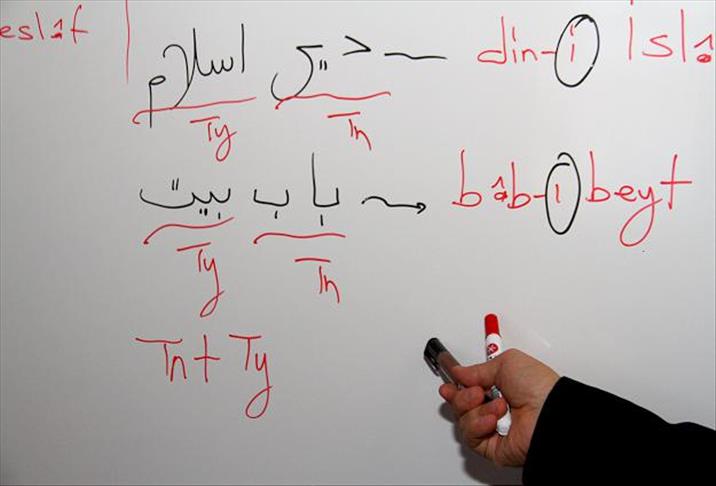 eslâf
دين اسلام din-i İslâ
Ty Tn
باب بيت bâb-ı beyt
Ty Tn
Tn + Ty